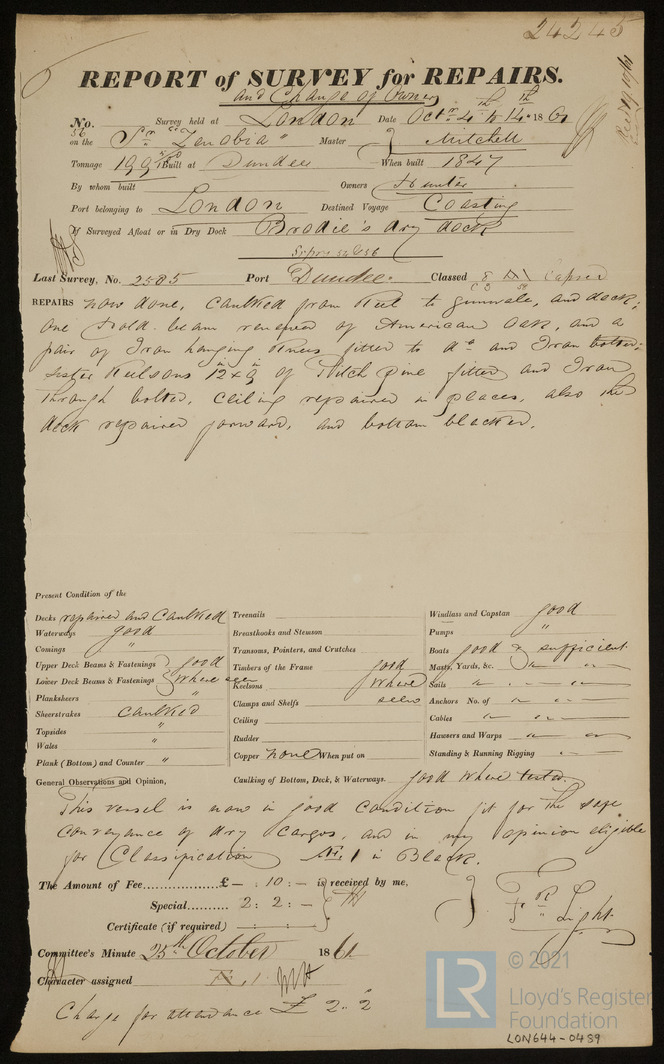 24245
REPORT of SURVEY for REPAIRS.
and Change of Owner
No. 56 Survey held at London Date Octr 4th to 14th 1861
on the Sr "Zenobia" Master Mitchell
Tonnage 199 Built at Dundee When built 1847
By whom built Owners Hunter
Port belonging to London Destined Voyage Coasting
If Surveyed Afloat or in Dry Dock Brodie's dry dock
Last Survey, No. 2585 Port Dundee. Classed 8 A1 Lapsed
REPAIRS now done, Caulked from Keel to gunwale, and deck;
one Hold beam renewed of American Oak, and a
pair of Iron hanging Knees fitted to do and Iron bolted;
sister Keilsons 12 x 9 of Pitch pine fitted and Iron
through bolted, Ceiling repaired in places, also the
deck repaired forward, and bottom blacked.
Present Condition of the
Decks repaired and Caulked
Waterways good
Comings "
Upper Deck Beams & Fastenings } good
Lower Deck Beams & Fastenings } where seen
Planksheers "
Sheerstrakes Caulked
Topsides "
Wales "
Plank (Bottom) and Counter "
Treenails
Breasthooks and Stemson
Transoms, Pointers, and Crutches
Timbers of the Frame good
Keelsons where
Clamps and Shelfs seen
Ceiling
Rudder
Copper none When put on
Windlass and Capstan good
Pumps "
Boats good & sufficient
Masts, Yards, &c. " "
Sails " "
Anchors No. of " "
Cables " "
Hawsers and Warps " "
Standing & Running Rigging " "
General Observations and Opinion, Caulking of Bottom, Deck, & Waterways. good where tested
This vessel is now in good Condition fit for the safe
conveyance of dry Cargos, and in my opinion eligible
for Classification Æ 1 in Black.
The Amount of Fee............... £ – : 10 : – is received by me,
Special.......... 2 : 2 : –
Certificate (if required) – : – : –
F R Light
Committee's Minute 25th October 1861
Character assigned Æ 1
Charge for attendance £ 2. 2
LR © 2021
Lloyd's Register
Foundation
LON644-0439